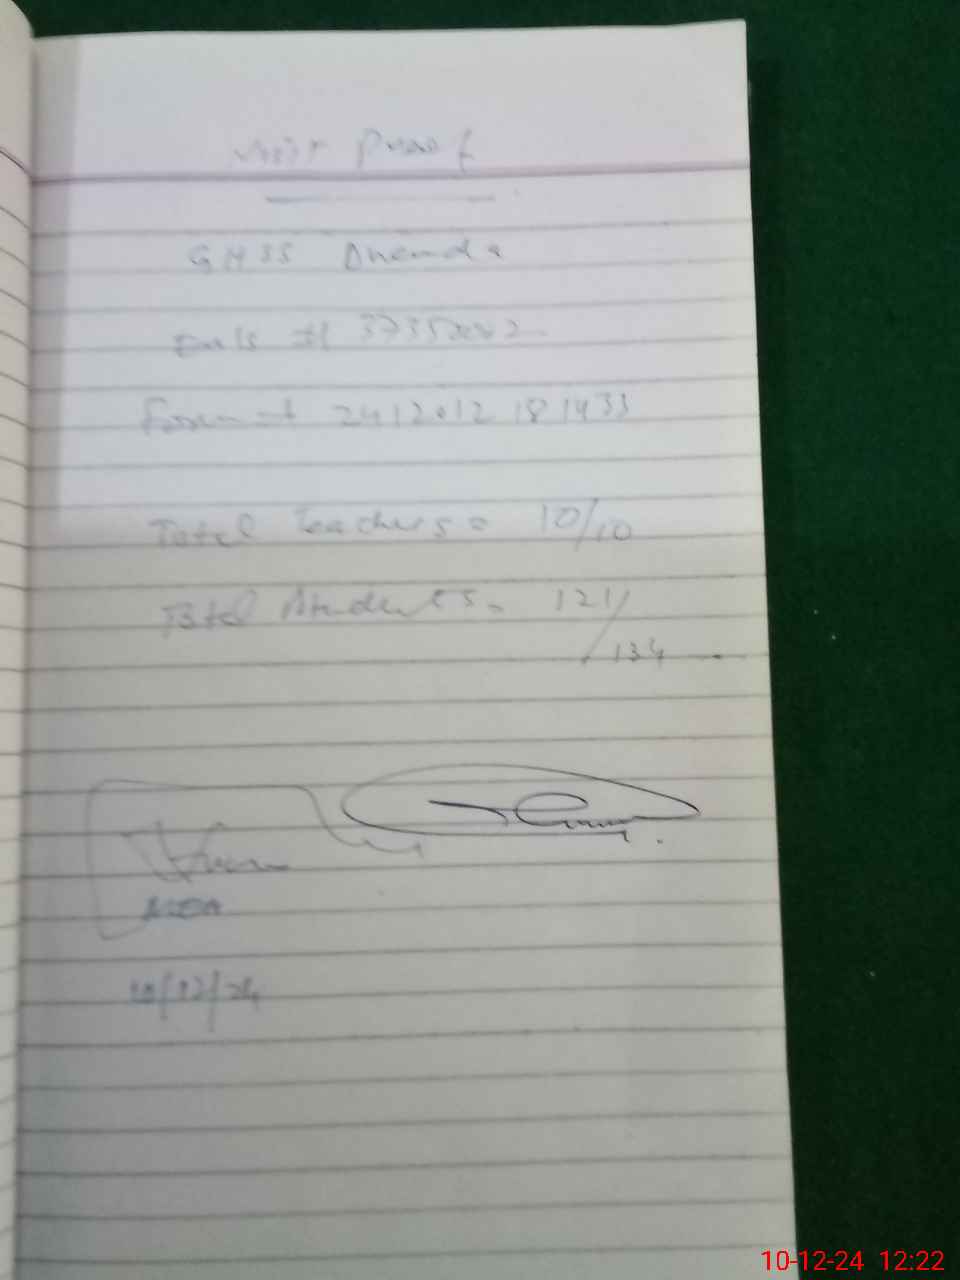 Visit Proof
GHSS
# 37350002
Form # 2412012181433
Total Teachers = 10/10
Total Students = 121/
134
MEA
10/12/24
10-12-24 12:22